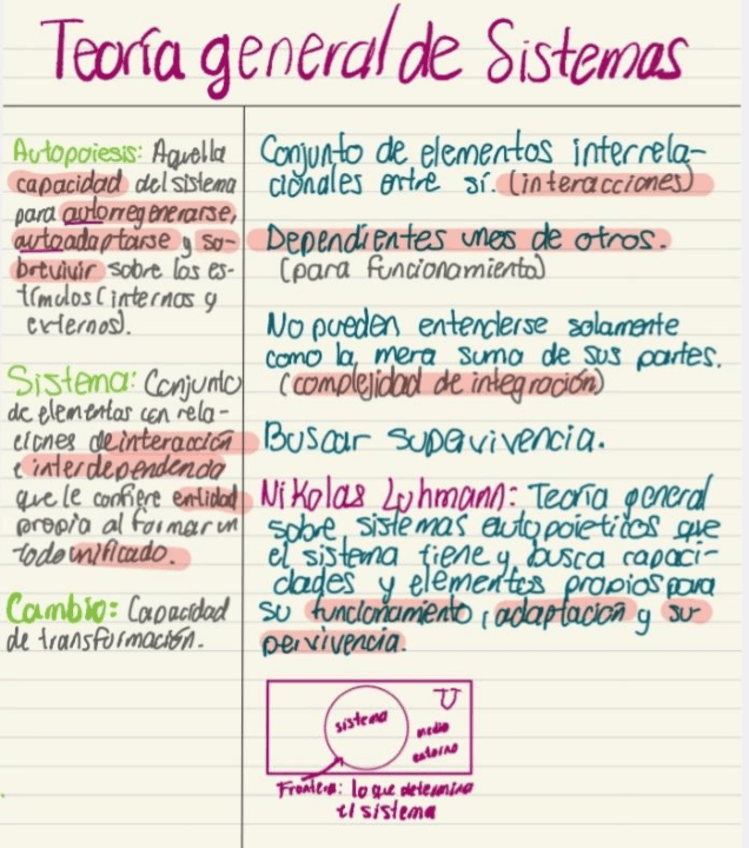 Teoría general de Sistemas
Autopoiesis: Aquella
capacidad del sistema
para autorregenerarse,
autoadaptarse y so-
brevivir sobre los es-
tímulos (internos y
externos).
Sistema: Conjunto
de elementos con rela-
ciones de interacción
e interdependencia
que le confiere entidad
propia al formar un
todo unificado.
Cambio: Capacidad
de transformación.
Conjunto de elementos interrela-
cionales entre sí. (interacciones)
Dependientes unos de otros.
(para funcionamiento)
No pueden entenderse solamente
como la mera suma de sus partes.
(complejidad de integración)
Buscar supervivencia.
Nikolas Luhmann: Teoría general
sobre sistemas autopoieticos que
el sistema tiene y busca capaci-
dades y elementos propios para
su funcionamiento, adaptación y su
pervivencia.
U
sistema
medio
externo
Frontera: lo que determina
el sistema